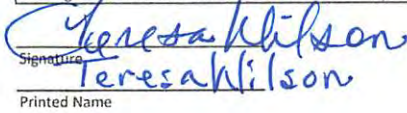 Teresa Wilson
Signature
Teresa Wilson
Printed Name